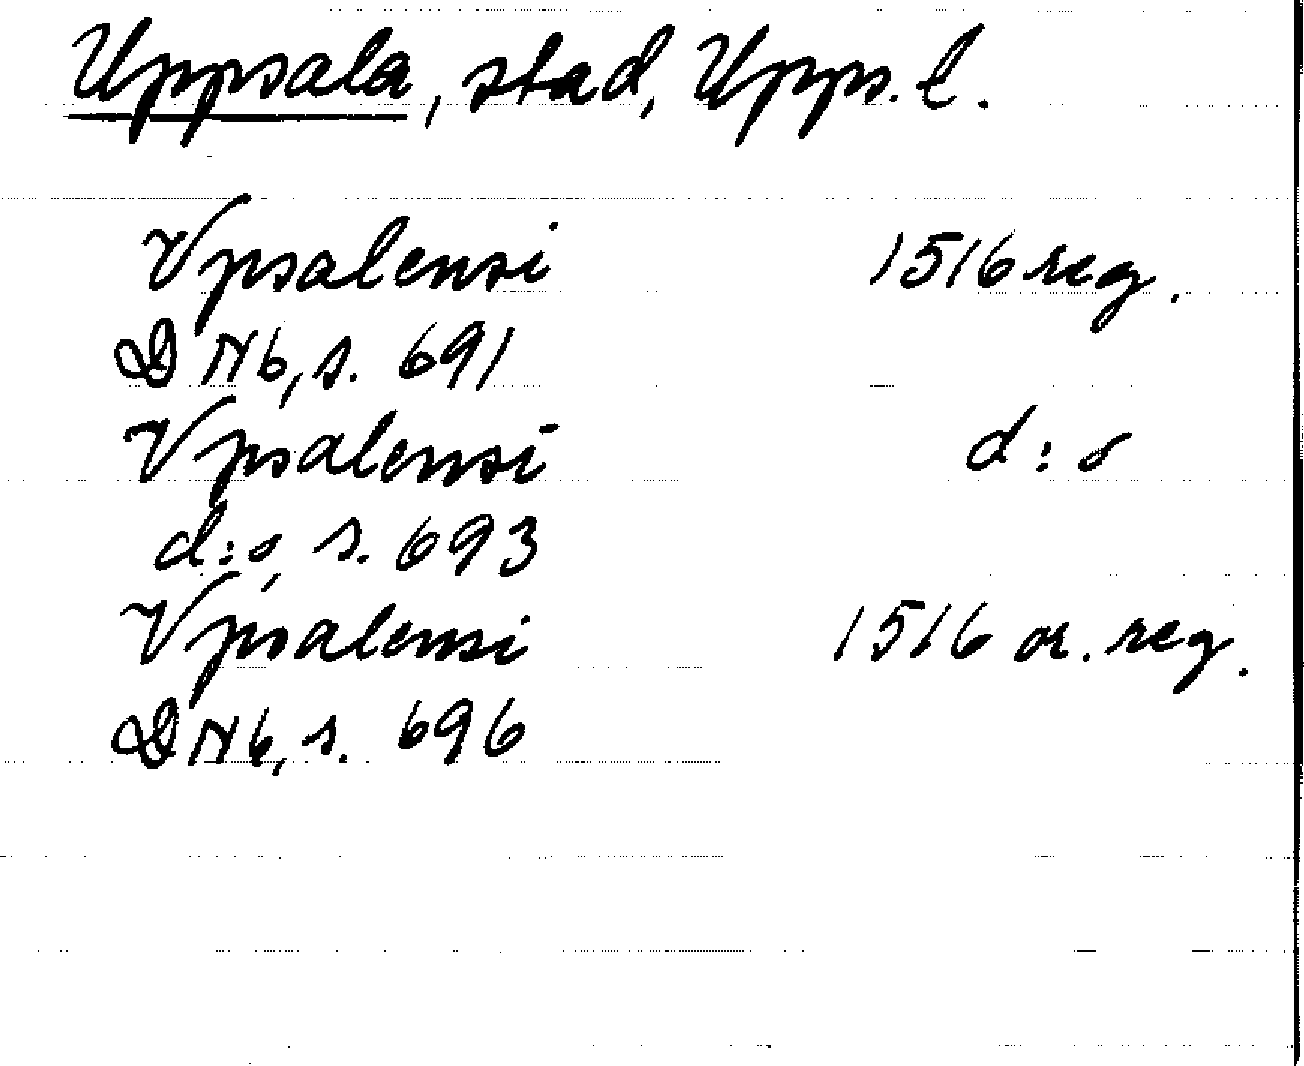 Uppsala, stad, Upps. l.
Vpsalensi 1516 reg.
DN6, s. 691
Vpsalensi d:o
d:o, s. 693
Vpsalensi 1516 or. reg.
DN6, s. 696